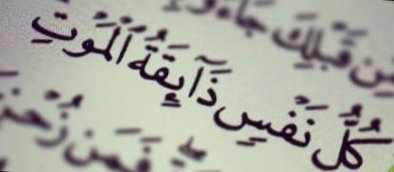 مِّن قَبْلِكَ جَآءُو
كُلُّ نَفْسٍ ذَآئِقَةُ ٱلْمَوْتِ
فَمَن زُحْزِ